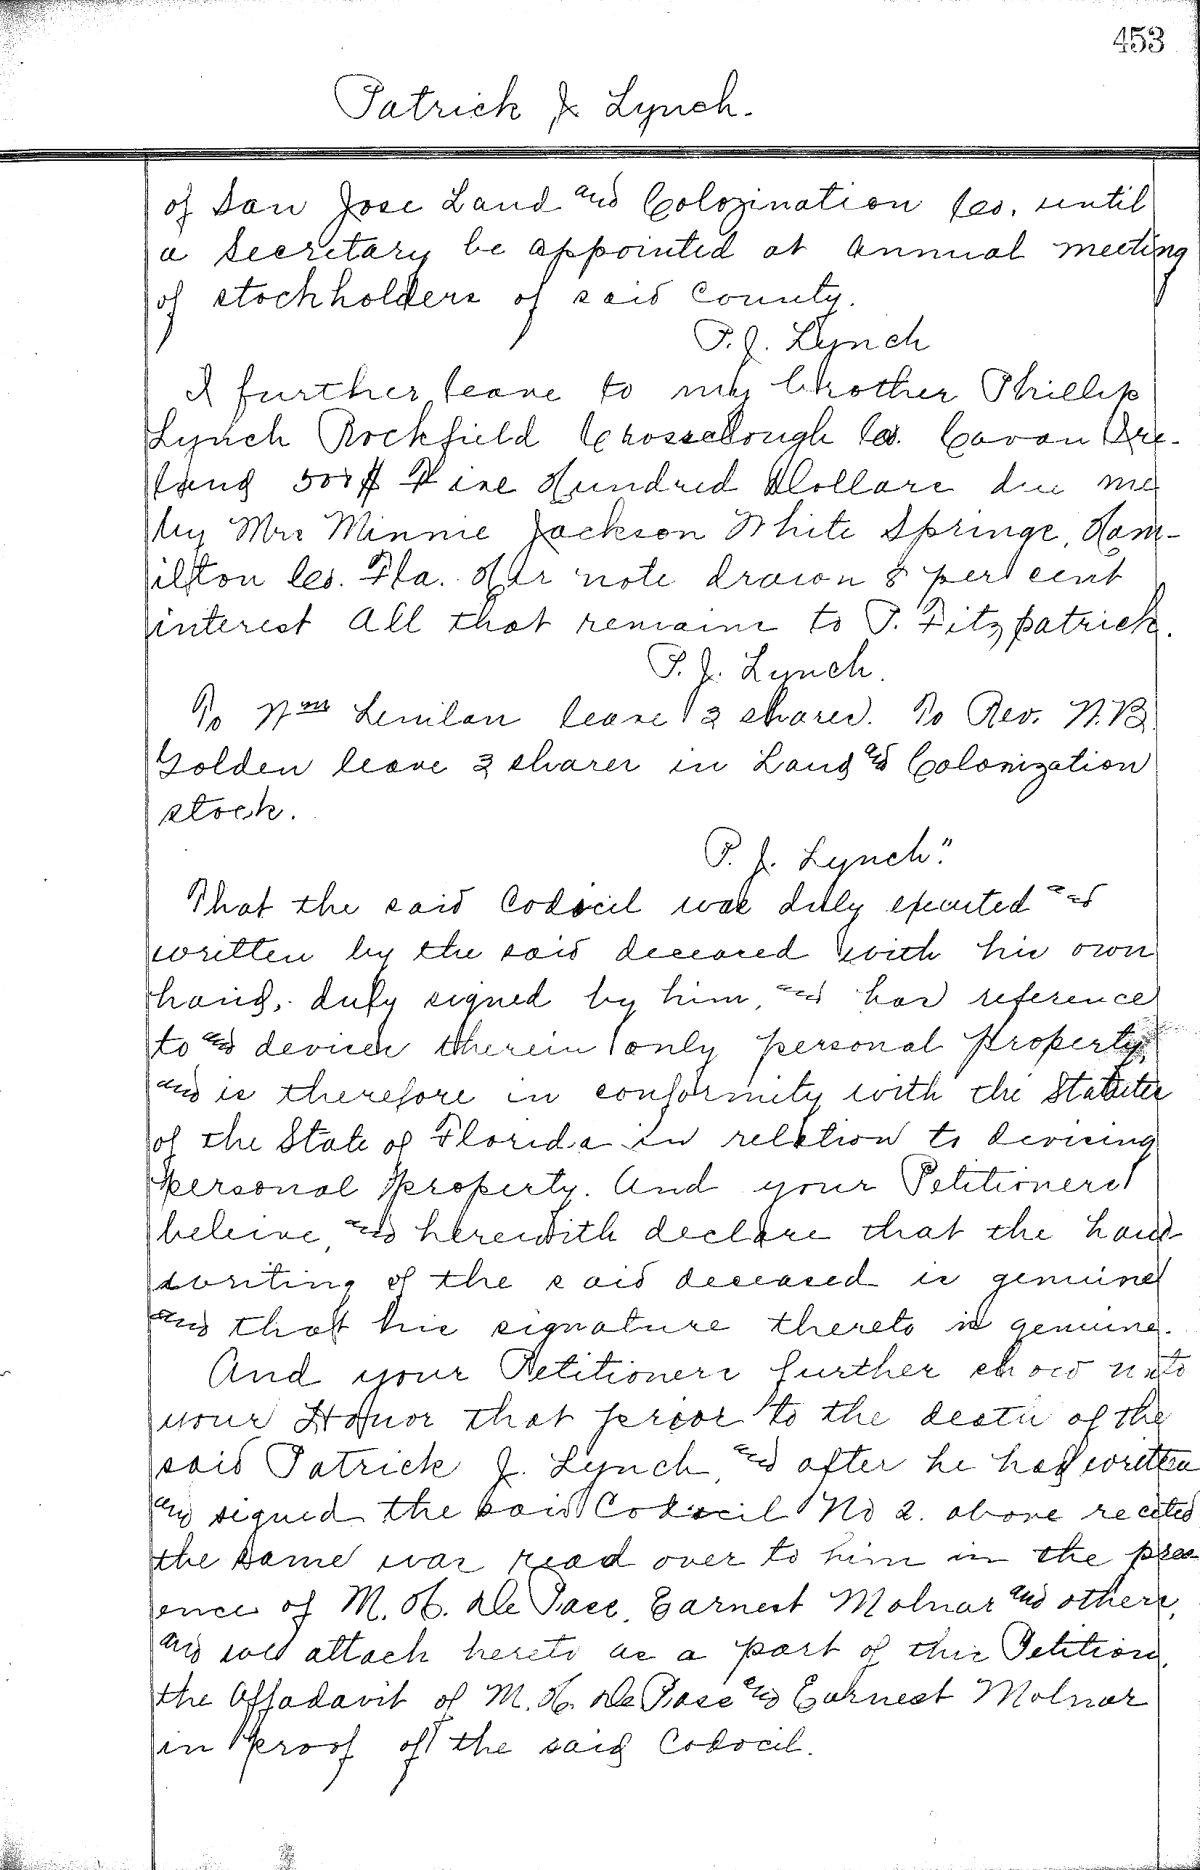 453
Patrick J. Lynch.
of San Jose Land and Colozination Co. until
a Secretary be appointed at Annual meeting
of stockholders of said County.
P. J. Lynch
I further leave to my brother Phillip
Lynch Rockfield Crosselough Co. Cavan Ire-
land 500$ Five Hundred Dollars due me
by Mrs Minnie Jackson White Springs, Ham-
ilton Co. Fla. Her note drawn 8 per cent
interest All that remains to P. Fitzpatrick.
P. J. Lynch.
To Wm Lenilan leave 2 shares. To Rev. N. B.
Golden leave 3 shares in Land and Colonization
stock.
P. J. Lynch."
That the said Codocil was duly executed and
written by the said deceased with his own
hand, duly signed by him, and had reference
to and devises therein only personal property,
and is therefore in conformity with the Statutes
of the State of Florida in relation to devising
personal property. And your Petitioners
beleive, and herewith declare that the hand
writing of the said deceased is genuine
and that his signature thereto is genuine.
And your Petitioners further show unto
your Honor that prior to the death of the
said Patrick J. Lynch, and after he had written
and signed the said Codocil No 2. above recited
the same was read over to him in the pres
ence of M. H. De Pass, Earnest Molnar and others,
and attach hereto as a part of this Petition,
the Affadavit of M. H. De Pass and Earnest Molnar
in proof of the said Codocil.